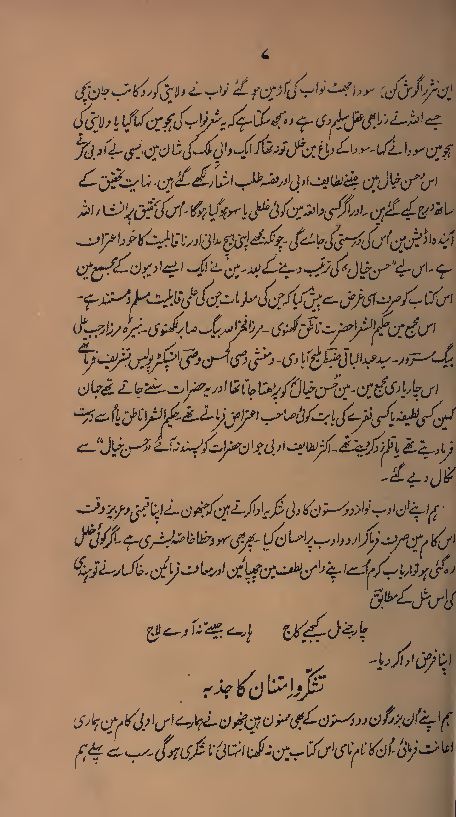 ۷
این شرر اگوش کن) سودا جھٹ نواب کی آڑ مین ہو گئے نواب نے ولایتی کو رد کا تب جان بچی
جسے اللہ نے ذرا بھی عقل سلیم دی ہے وہ سمجھ سکتا ہے کہ یہ شعر نواب کی ہجو مین کہا گیا یا ولایتی کی
ہجو مین سودا نے کہا۔ سودا کے دماغ مین خلل تو نہ تھا کہ ایک والیِ ملک کی شان مین ایسی بے ادبی کرتے
اس حسن خیال مین جتنے لطایف ادبی اور قصہ طلب اشعار لکھے گئے ہین۔ نہایت تحقیق کے
ساتھ درج کیے گئے ہین۔ اور اگر کسی واقعہ مین کوئی غلطی یا سہو ہو گیا ہوگا۔ اُس کی تحقیق پر انشاء اللہ
آیندہ اڈیشن مین اُس کی درستی کی جائے گی۔ چونکہ مجھے اپنی ہیچ مدانی اور نا قابلیت کا خود اعتراف
ہے۔ اس لیے "حسن خیال" کی ترتیب دینے کے بعد۔ مین نے ایک ایسے ادیبون کے مجمع مین
اس کتاب کو صرف اسی غرض سے پیش کیا کہ جن کی معلومات جن کی علمی قابلیت مسلم و مستند ہے۔
اس مجمع مین حکیم الشعرا حضرت ناطق لکھنوی۔ مرزا ظفر احمد بیگ صابر لکھنوی۔ نبیرہ مرزا رجب علی
بیگ سرور۔ سید عبدالباقی حفیظ ملیح آبادی۔ و منشی وصی الحسن وصی انسپکٹر پولیس تشریف فرما تھے
اس چار یاری مجمع مین۔ مین "حسن خیال" کو پڑھتا جاتا تھا اور یہ حضرات سنتے جاتے تھے جہان
کہین کسی لطیفہ یا کسی فقرے کی بابت کوئی صاحب اعتراض فرماتے تھے حکیم الشعرا ناطق یا اُسے درست
فرما دیتے تھے یا قلم زد کر دیتے تھے۔ اکثر لطایف ادبی جو ان حضرات کو پسند نہ آئے "حسن خیال" سے
نکال دیے گئے۔
ہم اپنے ان ادب نواز دوستون کا دلی شکریہ ادا کرتے ہین کہ جنھون نے اپنا قیمتی و عزیز وقت
اس کام مین صرف فرما کر اردو ادب پر احسان کیا۔ پھر بھی سہو و خطا خاصۂ بشری ہے۔ اگر کوئی خلل
رہ گئی ہو تو ارباب کرم اُسے اپنے دامن لطف مین چھپائین اور معاف فرمائین۔ خاکسار نے تو ہندی
کی اس مثل کے مطابق
چار جنے مل کیجیے کاج ہارے جیتے نہ آوے لاج
اپنا فرض ادا کر دیا۔
تشکر و امتنان کا جذبہ
ہم اپنے اُن بزرگون و دوستون کے بھی ممنون ہین جنھون نے ہمارے اس ادبی کام مین ہماری
اعانت فرمائی۔ اُن کا نام نامی اس کتاب مین نہ لکھنا انتہائی ناشکری ہو گی۔ سب سے پہلے ہم